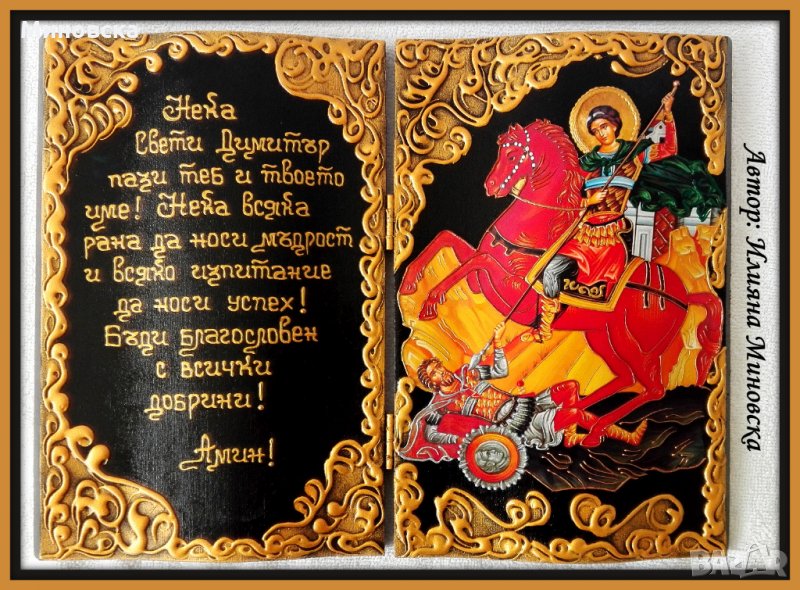 Миновска
Нека
Свети Димитър
пази теб и твоето
име! Нека всяка
рана да носи мъдрост
и всяко изпитание
да носи успех!
Бъди благословен
с всички
добрини!
Амин!
Автор: Илияна Миновска
BAZAR